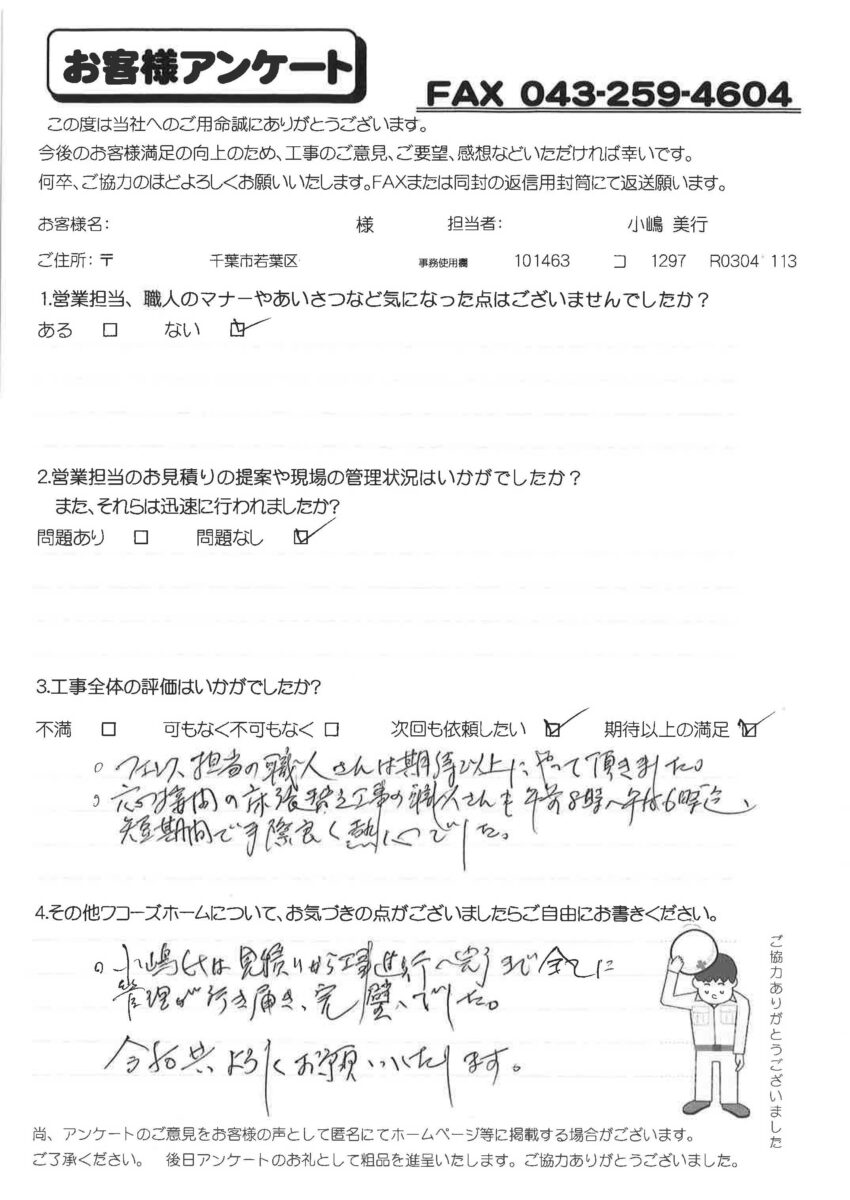 お客様アンケート
FAX 043-259-4604
この度は当社へのご用命誠にありがとうございます。
今後のお客様満足の向上のため、工事のご意見、ご要望、感想などいただければ幸いです。
何卒、ご協力のほどよろしくお願いいたします。FAXまたは同封の返信用封筒にて返送願います。
お客様名： 様 担当者： 小嶋 美行
ご住所：〒 千葉市若葉区 事務使用欄 101463 コ 1297 R0304 113
1.営業担当、職人のマナーやあいさつなど気になった点はございませんでしたか？
ある □ ない ☑
2.営業担当のお見積りの提案や現場の管理状況はいかがでしたか？
また、それらは迅速に行われましたか?
問題あり □ 問題なし ☑
3.工事全体の評価はいかがでしたか?
不満 □ 可もなく不可もなく □ 次回も依頼したい ☑ 期待以上の満足 ☑
○ フェンス担当の職人さんは期待以上にやって頂きました。
○ 間の床張替え工事の職人さんも午前8時〜午后6時迄、
短期間で手際良く熱心でした。
4.その他ワコーズホームについて、お気づきの点がございましたらご自由にお書きください。
○ 小嶋氏は見積りから工事進行〜完了まで全てに
管理が行き届き、完璧でした。
今后共よろしくお願いいたします。
ご協力ありがとうございました
尚、アンケートのご意見をお客様の声として匿名にてホームページ等に掲載する場合がございます。
ご了承ください。 後日アンケートのお礼として粗品を進呈いたします。ご協力ありがとうございました。